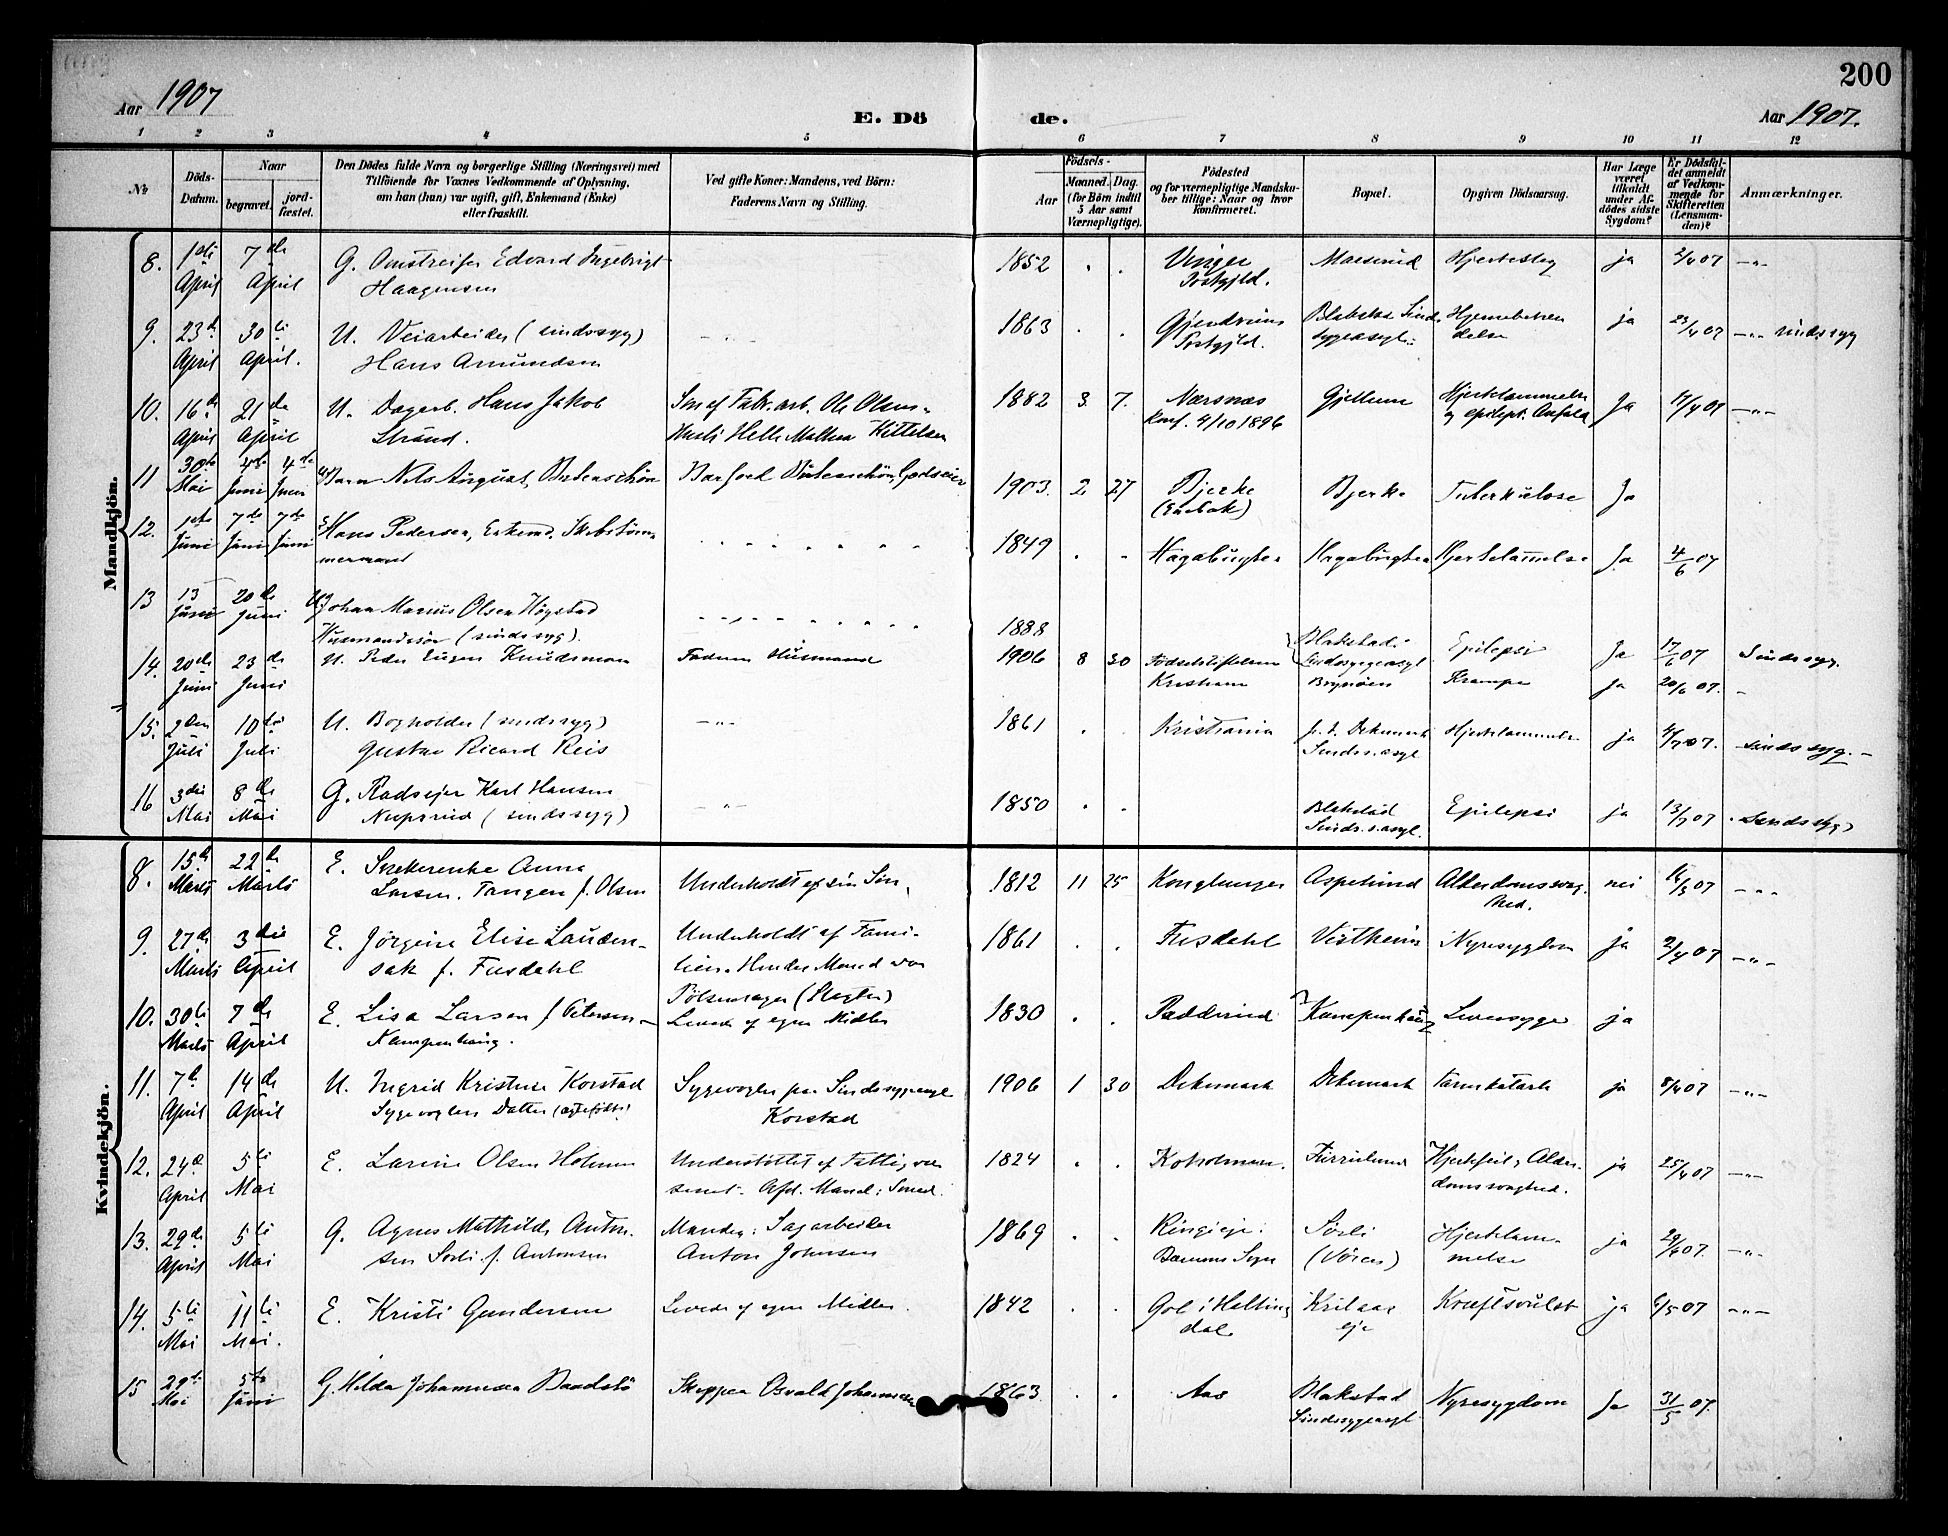 200
Aar 1907
E. Dö
de.
Aar 1907.
1 2 3 4 5 6 7 8 9 10 11 12
No
Döds-Datum.
Naar
begravet.
jord-fæstet.
Den Dödes fulde Navn og borgerlige Stilling (Næringsvei) med
Tilföiende for Voxnes Vedkommende af Oplysning,
om han (hun) var ugift, gift, Enkemand (Enke)
eller fraskilt.
Ved gifte Koner: Mandens, ved Börn:
Faderens Navn og Stilling.
Födsels-
Aar
Maaned. Dag.
(for Börn indtil
5 Aar samt
Værnepligtige).
Födested
og for værnepligtige Mandska-
ber tillige: Naar og hvor
konfirmeret.
Bopæl.
Opgiven Dödsaarsag.
Har Læge
været
tilkaldt
under Af-
dödes sidste
Sygdom?
Er Dödsfal-
det anmeldt
af Vedkom-
mende for
Skifteretten
(Lensman-
den)?
Anmærkninger.
Mandkjön.
8. 1ste 7de G. Omstreifer Edvard Ingebrigt 1852 . . Vinger Hjerteslag ja 2/4 07 -"-
April April Haagensen Prstgjld.
9. 23de 30te U. Veiarbeider (sindssyg) 1863 . . Gjerdrum Blakstad Sind. Hjernebetæn ja 23/4 07 -"- sindssyg
April April. Hans Amundsen Prstgjld. sygeasyl. delse
10. 16de 21de U. Dagarb. Hans Jakob Søn af Fabr.arb. Ole Olsen 1882 3. 7. Nærsnæs Gjellum Hjertelammelse Ja 17/4 07 -"-
April April Strand. Hustru Helle Mathea Kittelsen Konf. 4/10 1896 og epilept. Anfald
11 30te 4de 4de Barn Nils August Butenschön Barfoed Butenschön, Godseier 1903. 2 27 Bjerke Bjerke Tuberkulose Ja
Mai Juni Juni (Enebak)
12. 1ste 7de 7de Hans Pedersen, Enkemd. Skibstøm- 1849 . . Hagabugten Hagabugten Hjertelammelse Ja 4/6 07
Juni Juni Juni mermand
13 13 20de U. Johan Marius Olsen Høgstad 1888 Blakstad Epilepsi Ja 17/6 07 Sindssyg.
Juni Juni Husmandssøn (sindssyg). Sindssygeasyl
14. 20de 23de U. Peder Eugen Knudsen Faderen Husmand 1906 8 30 Fødselsstiftelsen Krampe Ja 20/6 07. -
Juni Juni Kristiania
15. 2den 10de U. Bogholder (sindssyg) -"- 1861 . Kristiania p. t. Dikemark Hjertelammelse ja 4/7 07. Sindssyg.-
Juli Juli Gustav Ricard Reis Sindss.asyl
16 3die 8de G. Karl Hansen -"- 1850 . . Blakstad Epilepsi ja 13/7 07 Sindssyg
Mai Mai (sindssyg) Sindss.asyl.
Kvindekjön.
8. 15de 22de E. Snekkerenke Anna Underholdt af sin Søn, 1812 11 25 Konglunger Aspelund Alderdomssvag. nei 16/3 07 -"-
Marts Marts Larsen. Tangen f. Olsen hed.
9. 27de 3die E. Jørgine Elise Lauden- Underholdt af Fami- 1861 . . Fusdahl Vestheim Nyresygdom ja 2/4 07 -"-
Marts April sak f. Fusdahl lien. Hendes Mand var
Pølsemager (Slagter)
10. 30te 7de E. Lisa Larsen f. Petersen- Levede af egne Midler 1830 . . Padderud Kampenhaug Leversyge ja
Marts April Kampenhaug.
11. 7de 14de U. Ingrid Kristine Korstad Sygevogter paa Sindssygeasyl 1906 1 30 Dikemark Dikemark Tarmkatarh ja 8/4 07 -"-
April April Sygevogters Datter (ægtefødt) Korstad
12. 24de 5te E. Larine Olsen Holmen Understøttet af Fattigvæ 1824 . . Koholmen. Furulund Hjertefeil, Alder- ja 25/4 07 -"-
April Mai senet. Afd. Mand: Smed. domssvaghed.
13. 29de 5te G. Agnes Mathilde Anton- Manden: Sagarbeider 1869 . . Ringieje: Sørli Hjertelam- ja 29/4 07. -"-
April Mai sen Sørli f. Antonsen Anton Johnsen Bærums Sogn (Vøien) melse
14. 5te 11te E. Kristi Gundersen Levede af egne Midler. 1842 . . Gol i Halling Kræftsvulst ja 6/5 07 -"-
Mai Mai. dal eje
15 29de 5te G. Hilda Johannesen Baadstø Skipper Osvald Johannesen 1863 . . Aas Blakstad Nyresygdom Ja 31/5 07.
Mai Juni Sindssygeasyl